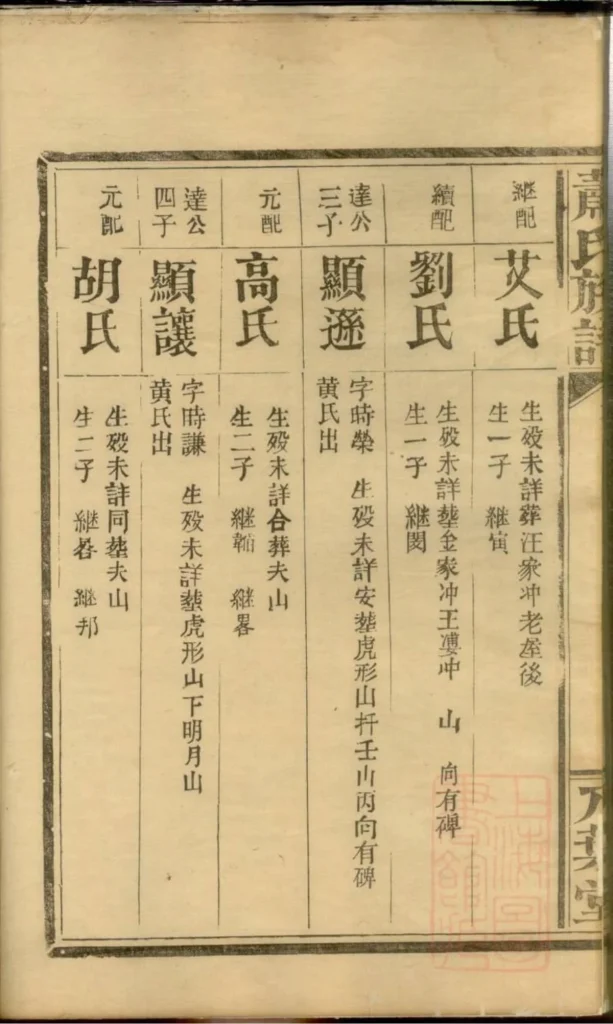 氏族譜
繼配
艾氏
生殁未詳葬汪家冲老屋後
生一子　繼寅
續配
劉氏
生殁未詳塟金家冲王婆冲　山　向有碑
生一子　繼閔
達公
三子
顯遜
字時榮　生殁未詳安塟虎形山扦壬山丙向有碑
黄氏出
元配
高氏
生殁未詳合葬夫山
生二子　繼輔　繼畧
達公
四子
顯讓
字時謙　生殁未詳塟虎形山下明月山
黄氏出
元配
胡氏
生殁未詳同塟夫山
生二子　繼　繼邦